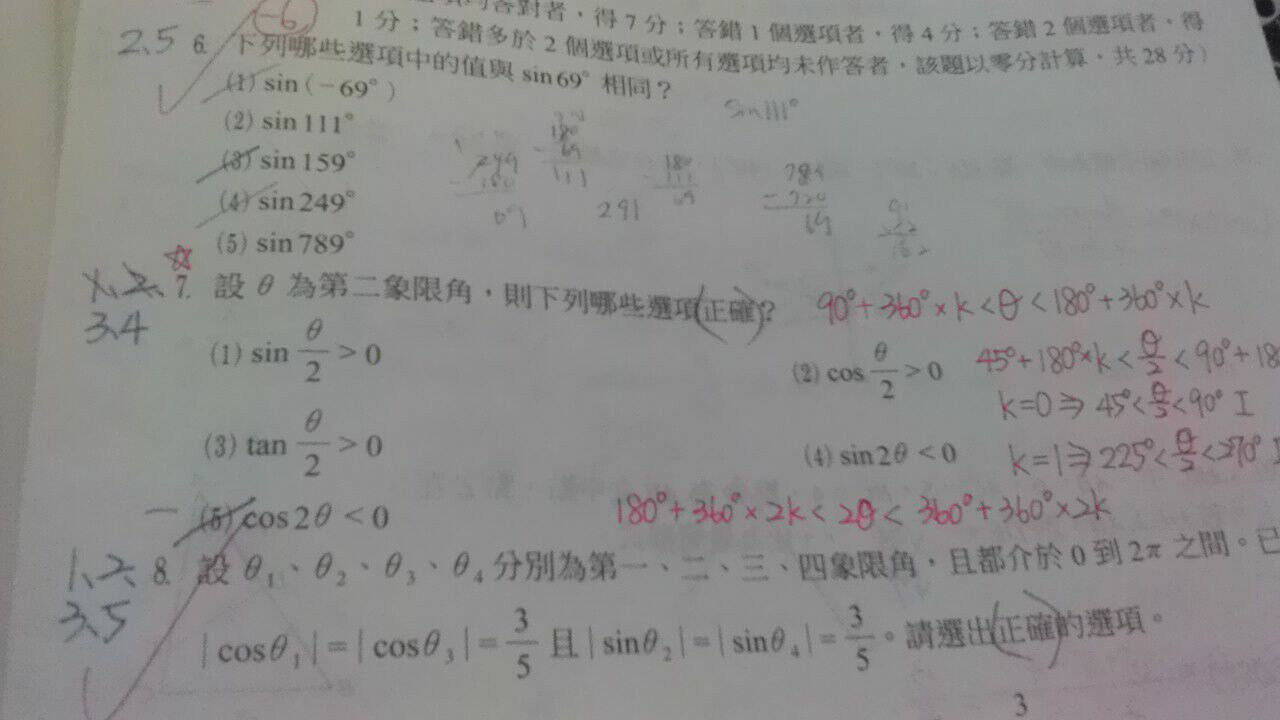 -6
均答對者，得7分；答錯1個選項者，得4分；答錯2個選項者，得
1分；答錯多於2個選項或所有選項均未作答者，該題以零分計算，共28分）
2、5 6. 下列哪些選項中的值與 sin69° 相同？
(1) sin(-69°)
sin111°
(2) sin111°
(3) sin159°
(4) sin249°
291
(5) sin789°
1、2、 7. 設 θ 為第二象限角，則下列哪些選項正確？ 90°+360°×k<θ<180°+360°×k
3、4
(1) sin θ/2 > 0 (2) cos θ/2 > 0 45°+180°×k<θ/2<90°+18
k=0⇒45°<θ/2<90° I
(3) tan θ/2 > 0 (4) sin2θ < 0 k=1⇒225°<θ/2<270° I
(5) cos2θ < 0 180°+360°×2k<2θ<360°+360°×2k
1、2、 8. 設 θ₁、θ₂、θ₃、θ₄ 分別為第一、二、三、四象限角，且都介於 0 到 2π 之間。已
3、5
|cosθ₁|=|cosθ₃|=3/5 且 |sinθ₂|=|sinθ₄|=3/5。請選出正確的選項。
3